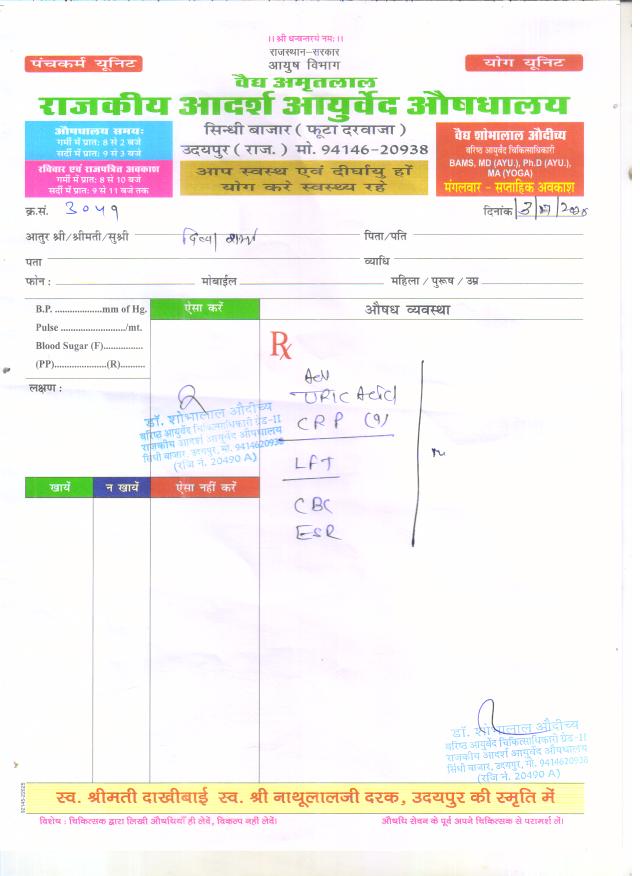 ।। श्री धन्वन्तरये नमः ।।
राजस्थान-सरकार
आयुष विभाग
पंचकर्म यूनिट
योग यूनिट
वैद्य अमृतलाल
राजकीय आदर्श आयुर्वेद औषधालय
औषधालय समयः
गर्मी में प्रात: 8 से 2 बजे
सर्दी में प्रात: 9 से 3 बजे
रविवार एवं राजपत्रित अवकाश
गर्मी में प्रात: 8 से 10 बजे
सर्दी में प्रात: 9 से 11 बजे तक
सिन्धी बाजार ( फूटा दरवाजा )
उदयपुर ( राज. ) मो. 94146-20938
आप स्वस्थ एवं दीर्घायु हों
योग करे स्वस्थ्य रहे
वैद्य शोभालाल औदीच्य
वरिष्ठ आयुर्वेद चिकित्साधिकारी
BAMS, MD (AYU.), Ph.D (AYU.),
MA (YOGA)
मंगलवार - सप्ताहिक अवकाश
क्र.सं. ३०५१
दिनांक
आतुर श्री/श्रीमती/सुश्री दिव्या शर्मा पिता/पति
पता व्याधि
फोन : मोबाईल महिला / पुरूष / उम्र
B.P. ...................mm of Hg.
Pulse ........................../mt.
Blood Sugar (F)................
(PP).....................(R)..........
लक्षण :
ऐसा करें
औषध व्यवस्था
Rx
Adv
URIC Acid
CRP (9)
LFT
CBC
ESR
डॉ. शोभालाल औदीच्य
वरिष्ठ आयुर्वेद चिकित्साधिकारी ग्रेड-II
राजकीय आदर्श आयुर्वेद औषधालय
सिंधी बाजार, उदयपुर, मो. 9414620938
(रजि नं. 20490 A)
खायें
न खायें
ऐसा नहीं करें
डॉ. शोभालाल औदीच्य
वरिष्ठ आयुर्वेद चिकित्साधिकारी ग्रेड-II
राजकीय आदर्श आयुर्वेद औषधालय
सिंधी बाजार, उदयपुर, मो. 9414620938
(रजि नं. 20490 A)
स्व. श्रीमती दाखीबाई स्व. श्री नाथूलालजी दरक, उदयपुर की स्मृति में
विशेष : चिकित्सक द्वारा लिखी औषधियाँ ही लेवें, विकल्प नहीं लेवें।
औषधि सेवन के पूर्व अपने चिकित्सक से परामर्श लें।